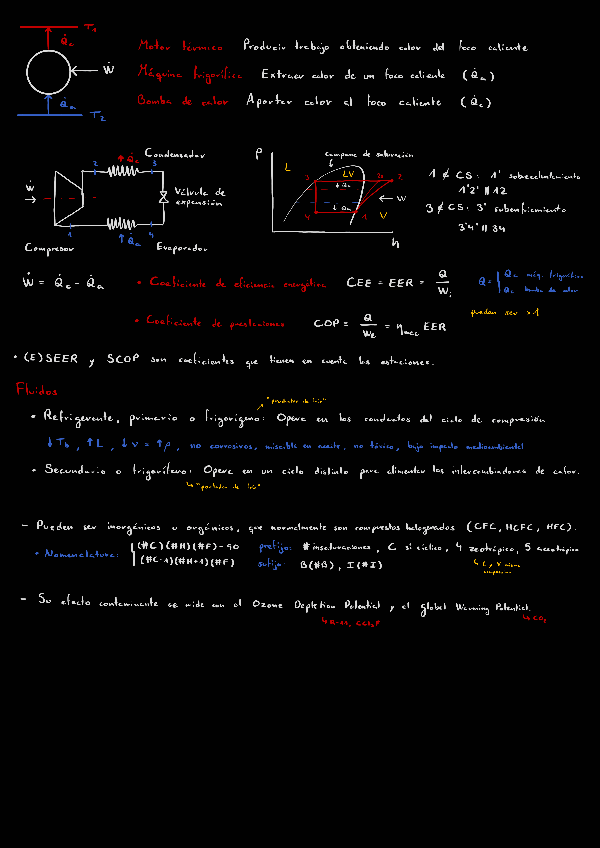 T₁
Q̇c
Ẇ
Q̇a
T₂
Motor térmico Producir trabajo obteniendo calor del foco caliente
Máquina frigorífica Extraer calor de un foco caliente (Q̇a)
Bomba de calor Aportar calor al foco caliente (Q̇c)
Condensador
↑ Q̇c
2 3
Ẇ
Válvula de
expansión
1 4
↑ Q̇a
Compresor Evaporador
P
campana de saturación
L LV V
3 2s 2
Qc
Qa
4 1
W
h
1 ∉ CS: 1' sobrecalentamiento
1'2' ∦ 12
3 ∉ CS: 3' subenfriamiento
3'4' ∥ 34
Ẇ = Q̇c - Q̇a
• Coeficiente de eficiencia energética CEE = EER = Q/Wi
Q = { Qa máq. frigorífica
Qc bomba de calor
pueden ser >1
• Coeficiente de prestaciones COP = Q/WE = ηmec EER
• (E)SEER y SCOP son coeficientes que tienen en cuenta las estaciones.
Fluidos
"productor de frío"
• Refrigerante, primario o frigorígeno: Opera en los conductos del ciclo de compresión
↓Tb, ↑L, ↓v = ↑ρ, no corrosivos, miscible en aceite, no tóxico, bajo impacto medioambiental
• Secundario o frigorífero: Opera en un ciclo distinto para alimentar los intercambiadores de calor.
↳ "portador de frío"
- Pueden ser inorgánicos u orgánicos, que normalmente son compuestos halogenados (CFC, HCFC, HFC).
• Nomenclatura: { (#C)(#H)(#F)-90
(#C-1)(#H+1)(#F)
prefijo: # insaturaciones, C si cíclico, 4 zeotrópico, 5 azeotrópico
sufijo: B(#B), I(#I)
↳ L y V misma
composición
- Su efecto contaminante se mide con el Ozone Depletion Potential y el Global Warming Potential.
↳ R-11, CCl₃F
↳ CO₂